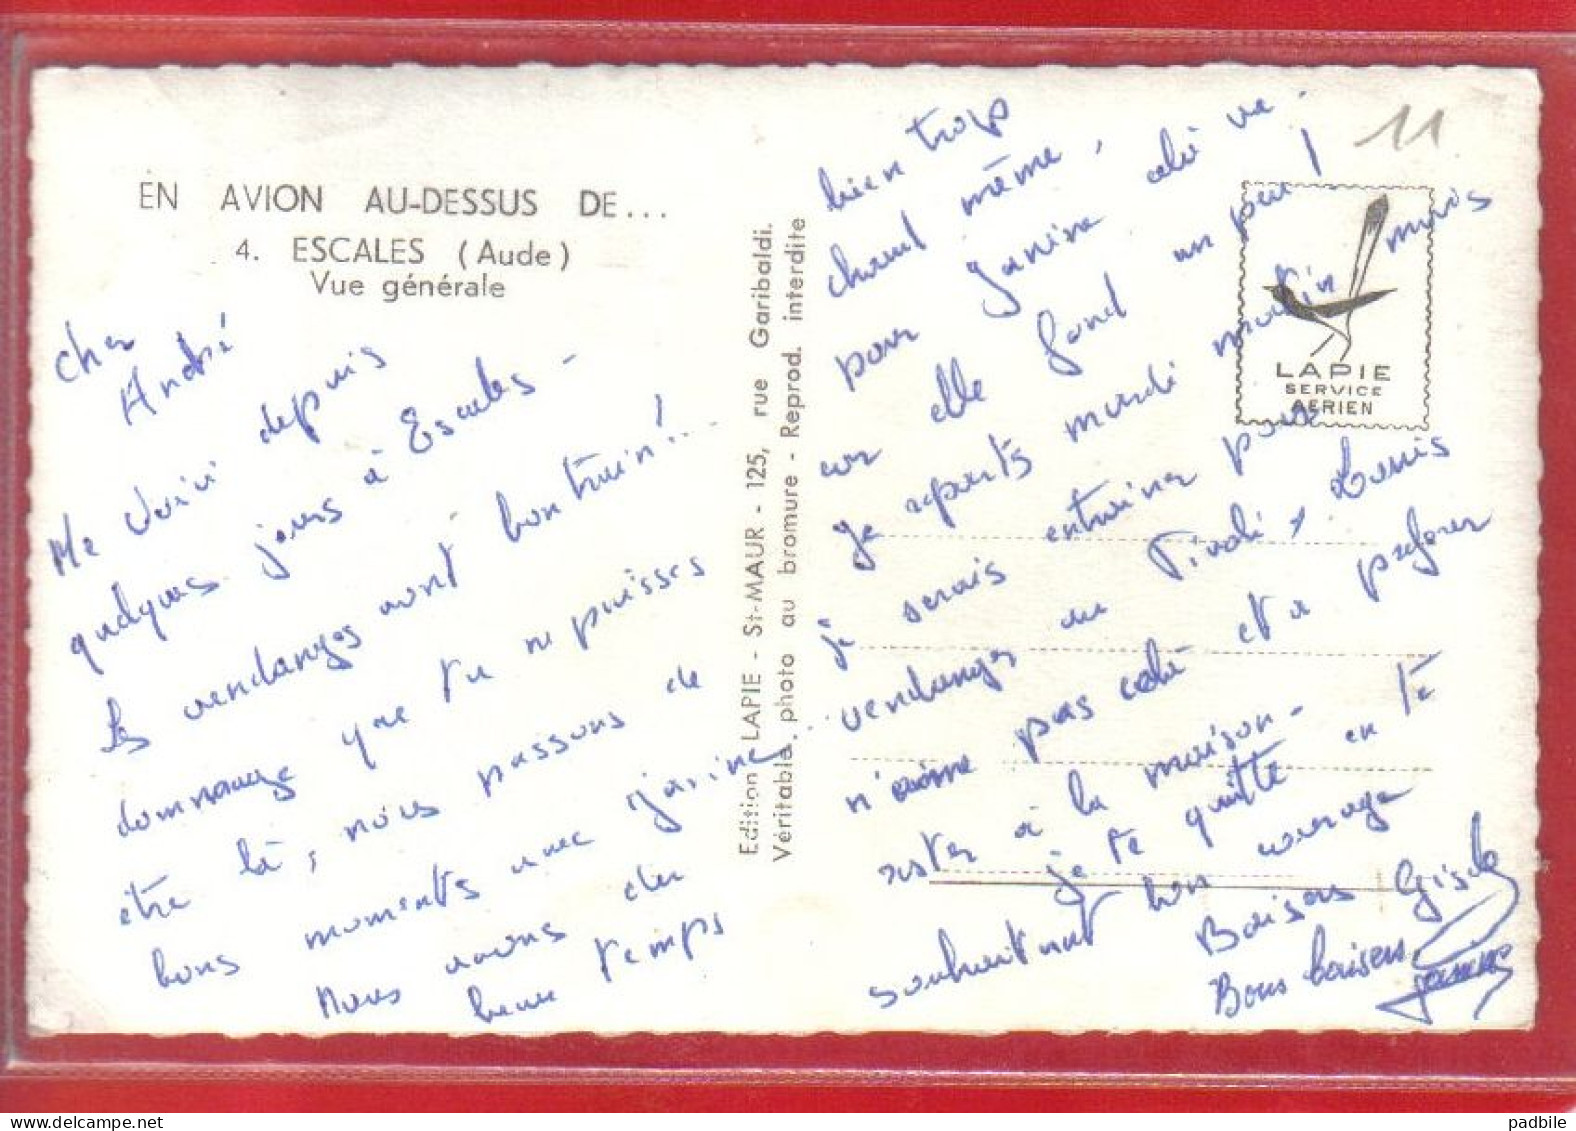 EN AVION AU-DESSUS DE...
4. ESCALES (Aude)
Vue générale
Cher
André
Me voici depuis
quelques jours à Escales -
Les vendanges vont bon train!...
dommage que tu ne puisses
être là, nous passons de
bons moments avec Janine.
Nous avons du
beau temps
Edition LAPIE - St-MAUR - 125, rue Garibaldi.
Véritable photo au bromure - Reprod. interdite
bien trop
chaud même,
pour Janine celà va
car elle fond un peu!
Je repars mardi matin mais
je serais entrainer pour
vendanger au Tivoli, Louis
n'aime pas celà et a préférer
rester à la maison -
je te quitte en te
souhaitant bon courage
Baisers Gisèle
Bons baisers
Janine
11
LAPIE
SERVICE
AERIEN
padbile